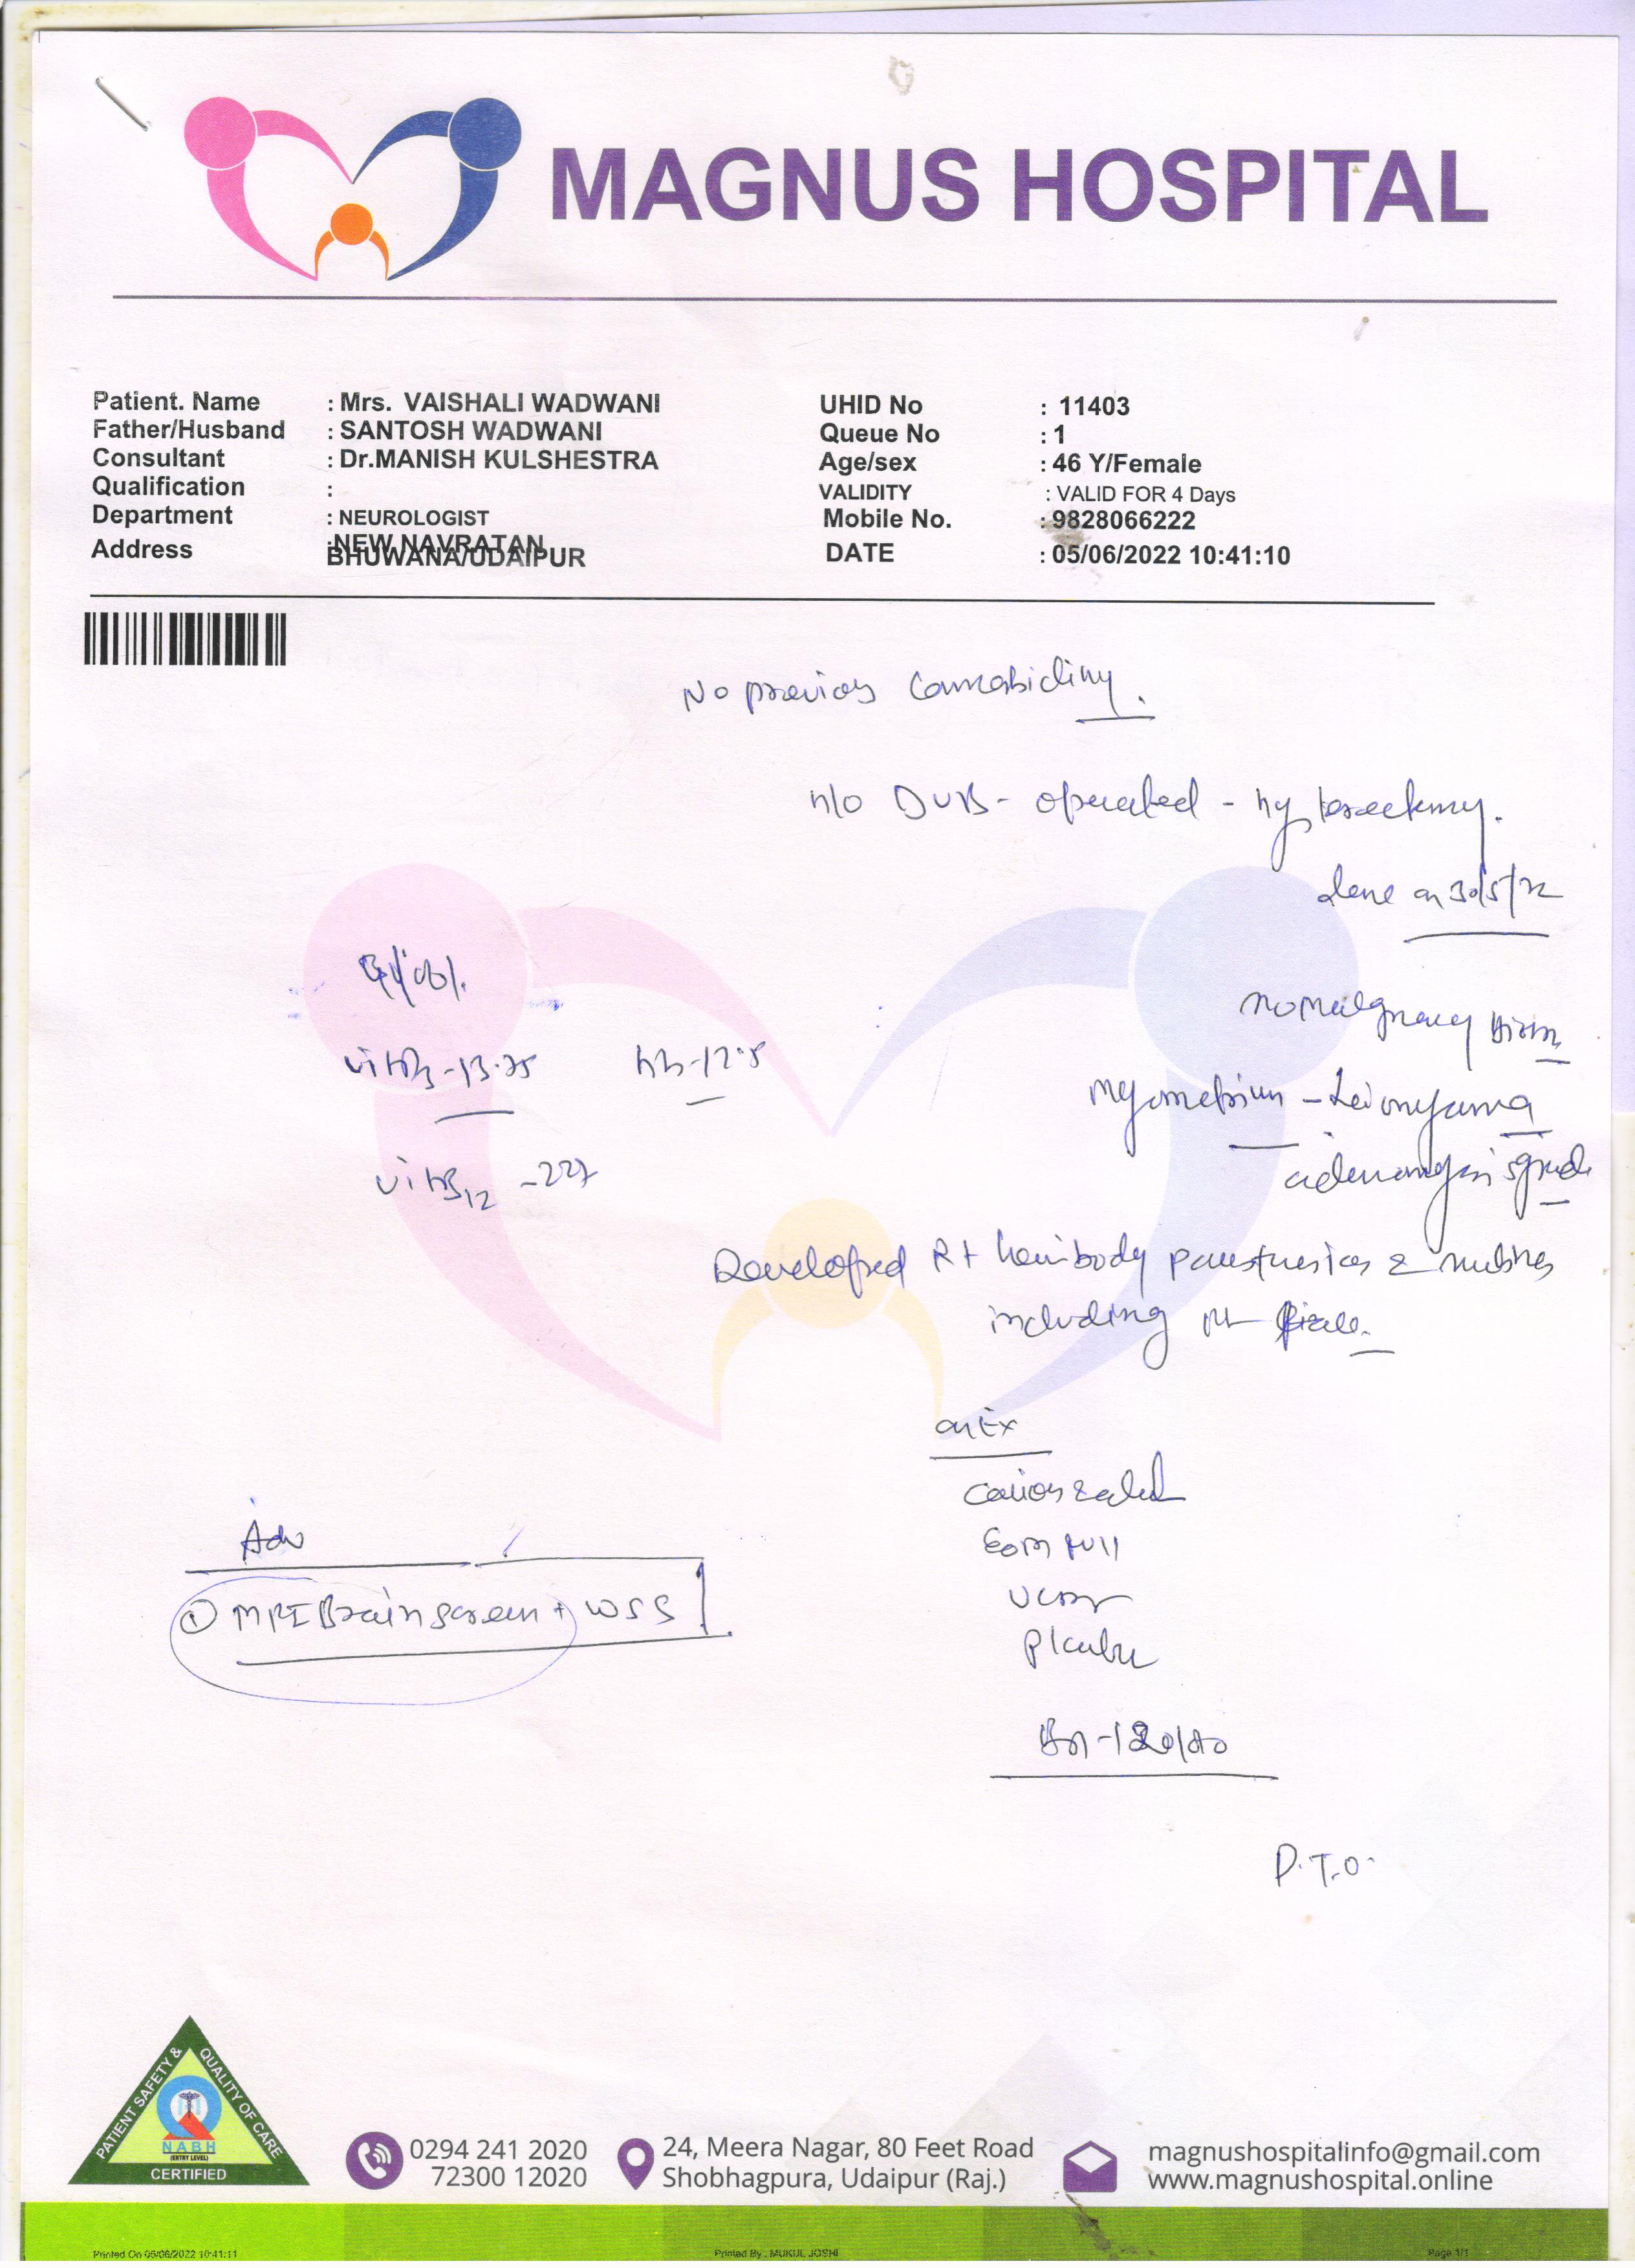 MAGNUS HOSPITAL
Patient. Name : Mrs. VAISHALI WADWANI
Father/Husband : SANTOSH WADWANI
Consultant : Dr.MANISH KULSHESTRA
Qualification :
Department : NEUROLOGIST
Address : NEW NAVRATAN
BHUWANA/UDAIPUR
UHID No : 11403
Queue No : 1
Age/sex : 46 Y/Female
VALIDITY : VALID FOR 4 Days
Mobile No. : 9828066222
DATE : 05/06/2022 10:41:10
No previous
h/o DUB - operated - hysterectomy.
done on 30/5/22
no malignancy
myometrium - Leiomyoma
vit D3 - 13.75 hb - 12.5
vit B12 - 227
Developed Rt hemibody paresthesias & numbness
including Rt face.
on Ex
Conscious
EOM full
120/80
Adv
① MRI Brain screen + WSS
P.T.O.
PATIENT SAFETY & QUALITY OF CARE
NABH
(ENTRY LEVEL)
CERTIFIED
0294 241 2020
72300 12020
24, Meera Nagar, 80 Feet Road
Shobhagpura, Udaipur (Raj.)
magnushospitalinfo@gmail.com
www.magnushospital.online
Printed On 05/06/2022 10:41:11 Printed By : MUKUL JOSHI Page 1/1